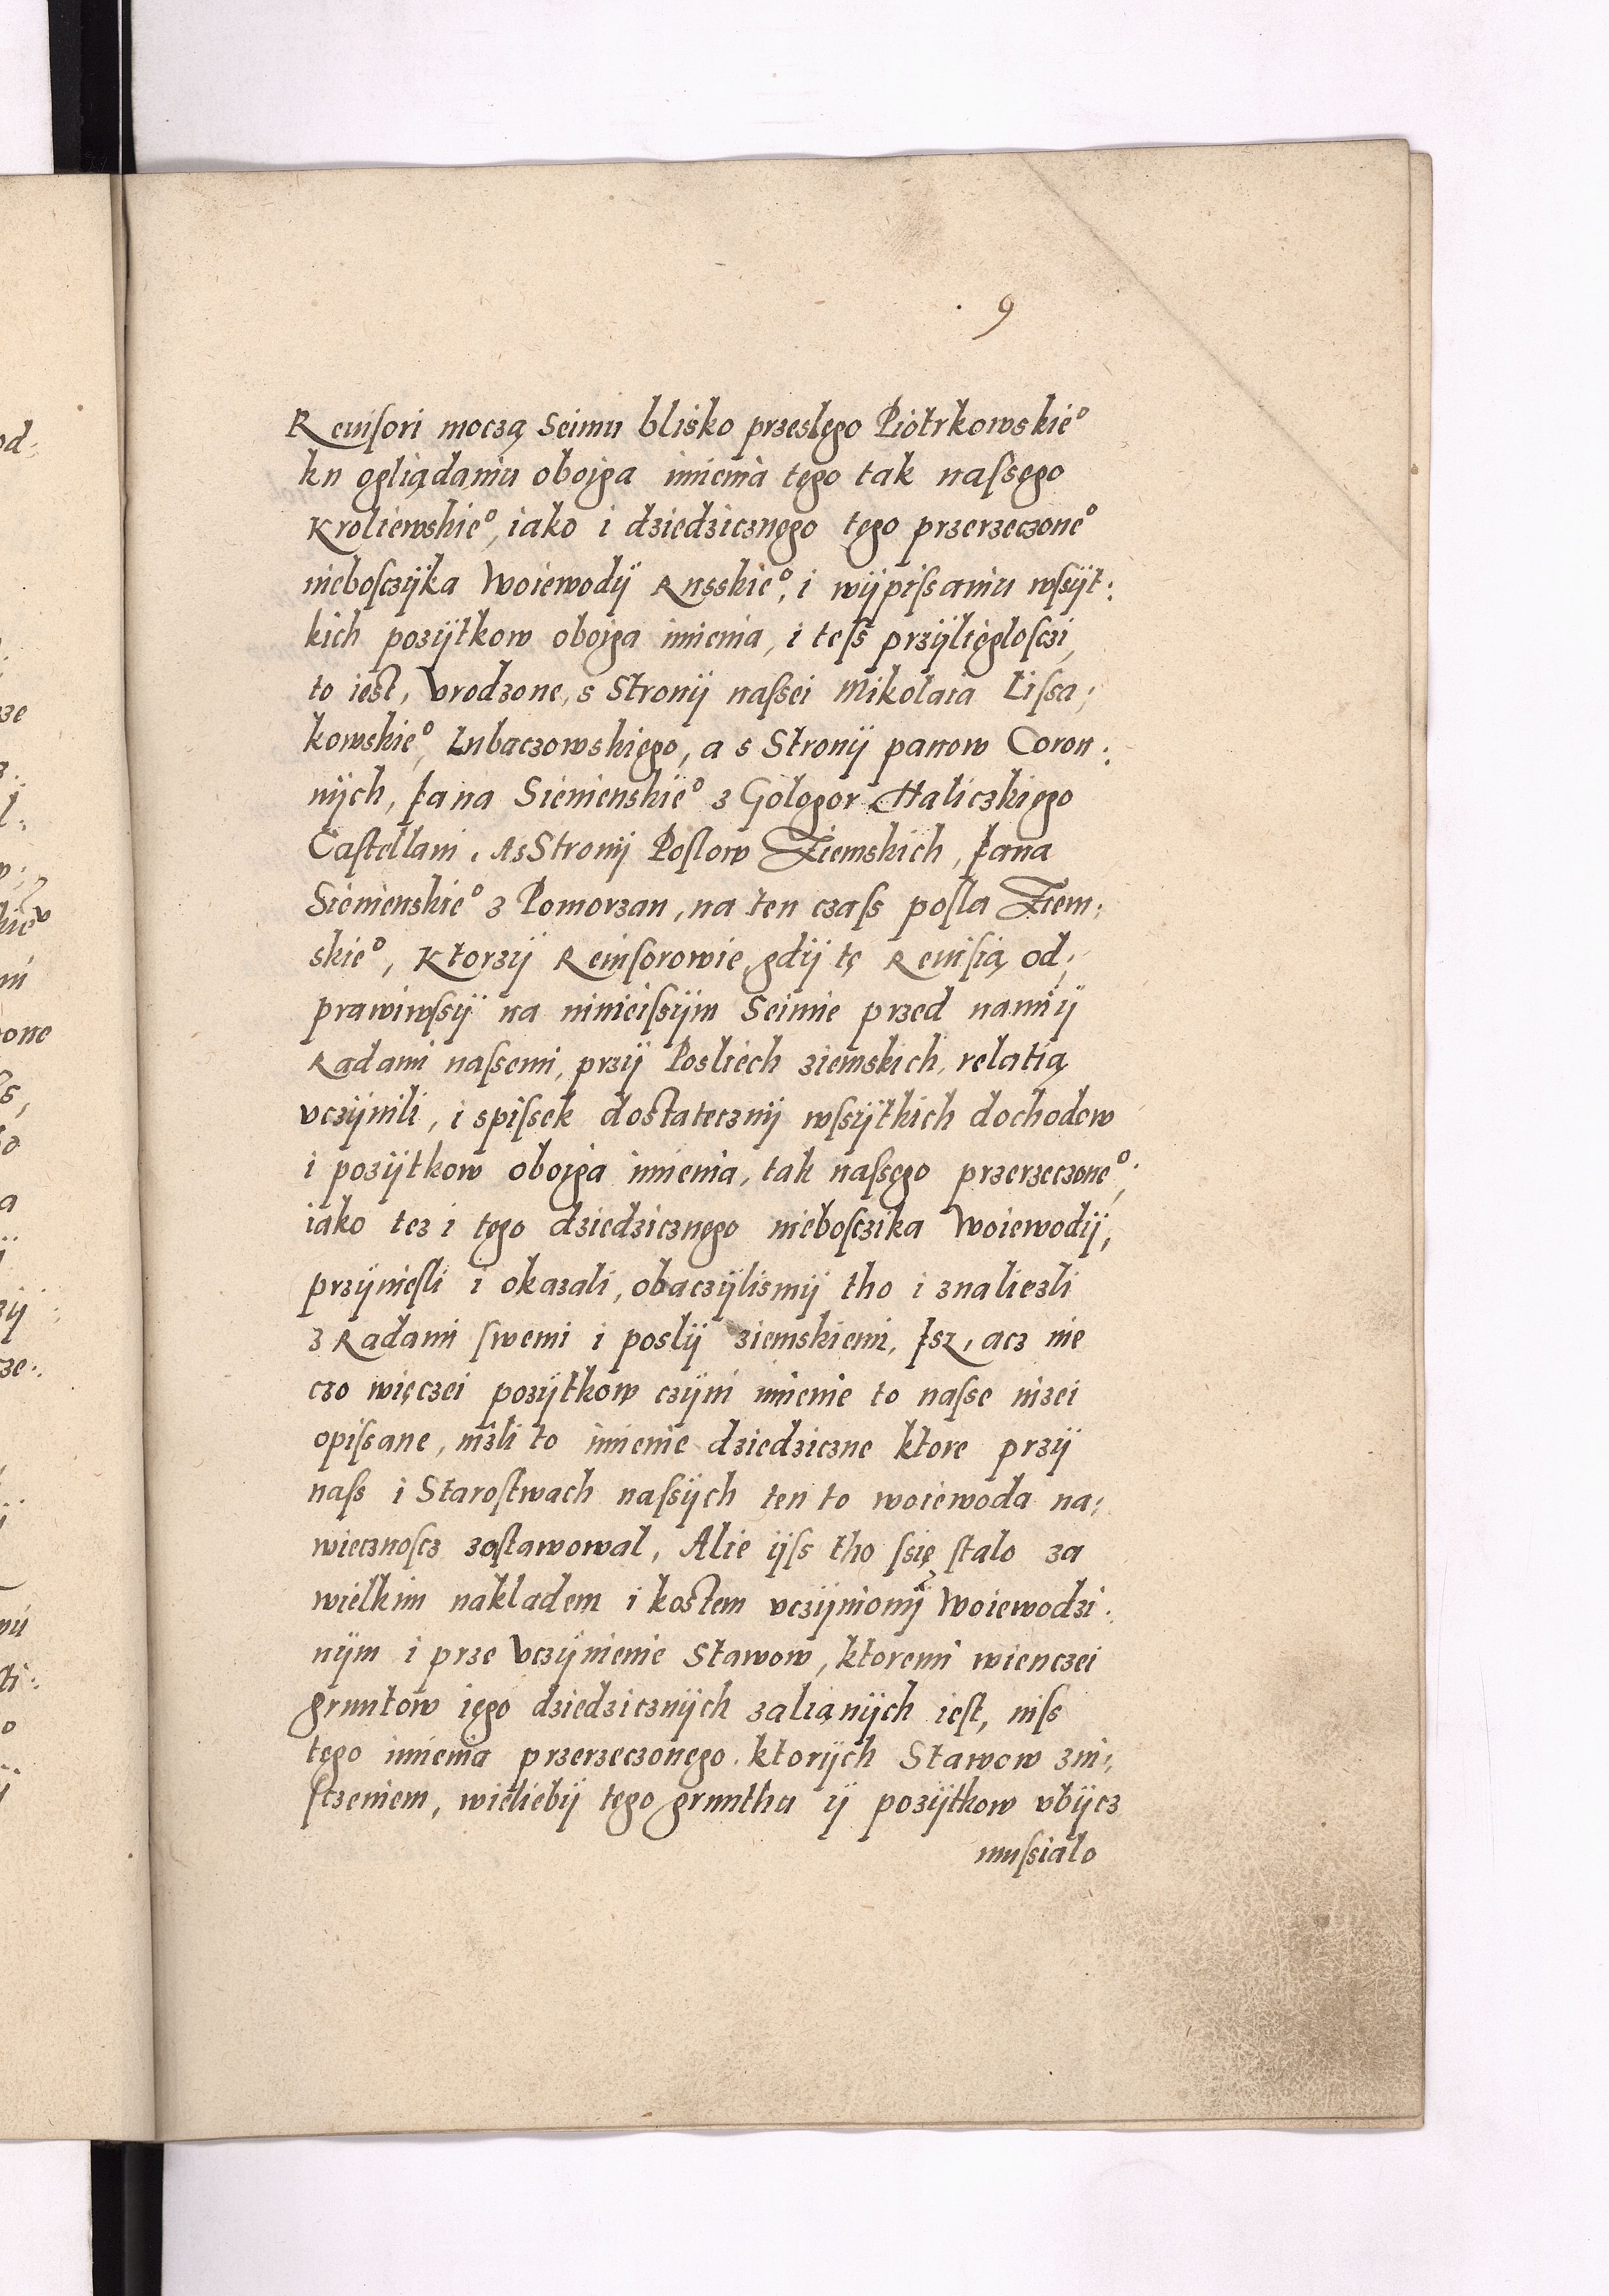 9
Reuisori moczą Seimu blisko przeslęgo Piotrkowskie°
ku oglią̨daniu obojga imienia tęgo tak naſsęgo
Kroliewskie°, iako i dziedzicznęgo tęgo przerzeczone°
nieboſczÿka Woiewodÿ Russkie°, i wÿpiſsaniu wſsÿt:
kich pozÿtkow obojga imienia, i teſs przÿliegloſczi,
to iest, Vrodzone, s Stronÿ naſsei Mikolaia Liſsa;
kowskie°, Lubaczowskięgo, a s Stronÿ panow Coron:
nÿch, Jana Sienienskie° z Gologor Haliczkięgo
Caſtellani, As Stronÿ Poſlow Ziemskich, Jana
Sienienskie° z Pomorzan, na ten czaſs poſla Ziem:
skie°, Ktorzÿ Reuiſorowie, gdÿ tę Reuiſią od;
prawiwſsÿ na ninieiſsÿm Seimie przed nami ÿ
Radami naſsemi, przÿ Posliech ziemskich, relatią
vczÿnili, i spiſsek dostatecznÿ wſsÿtkich dochodow
i pozÿtkow obojga imienia, tak naſsęgo przerzeczone°;
iako tez i tęgo dziedzicznęgo nieboſczika Woiewodÿ,
przÿnieſli i okazali, obaczÿlismÿ tho i znaliezli
z Radami ſwemi i poslÿ ziemskiemi, Jsz, acz nie
czo więczei pozÿtkow czÿni imienie to naſse nizei
opiſsane, nizli to imienie dziedziczne ktore przÿ
naſs i Staroſtwach naſsÿch ten to woiewoda na;
wiecznoſcz zoſtawowal, Alie ÿſs tho ſsię ſtalo za
wielkim nakladem i kostem vczÿnionÿ Woiewodzi:
nÿm i prze Vczÿnienie Stawow, ktoremi wienczei
gruntow ięgo dziedzicznÿch zalianÿch ieſt, niſs
tęgo imienia przerzeczonego. ktorÿch Stawow zni:
ſczeniem, wieliebÿ tęgo gruntha ÿ pozÿtkow vbÿcz
muſsialo